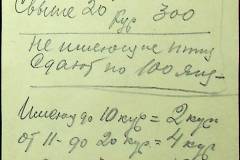 Свыше 20 кур 300
не имеющие птиц
Сдают по 100 яиц
Имеют до 10 кур = 2 кур
от 11- до 20 кур. = 4 кур